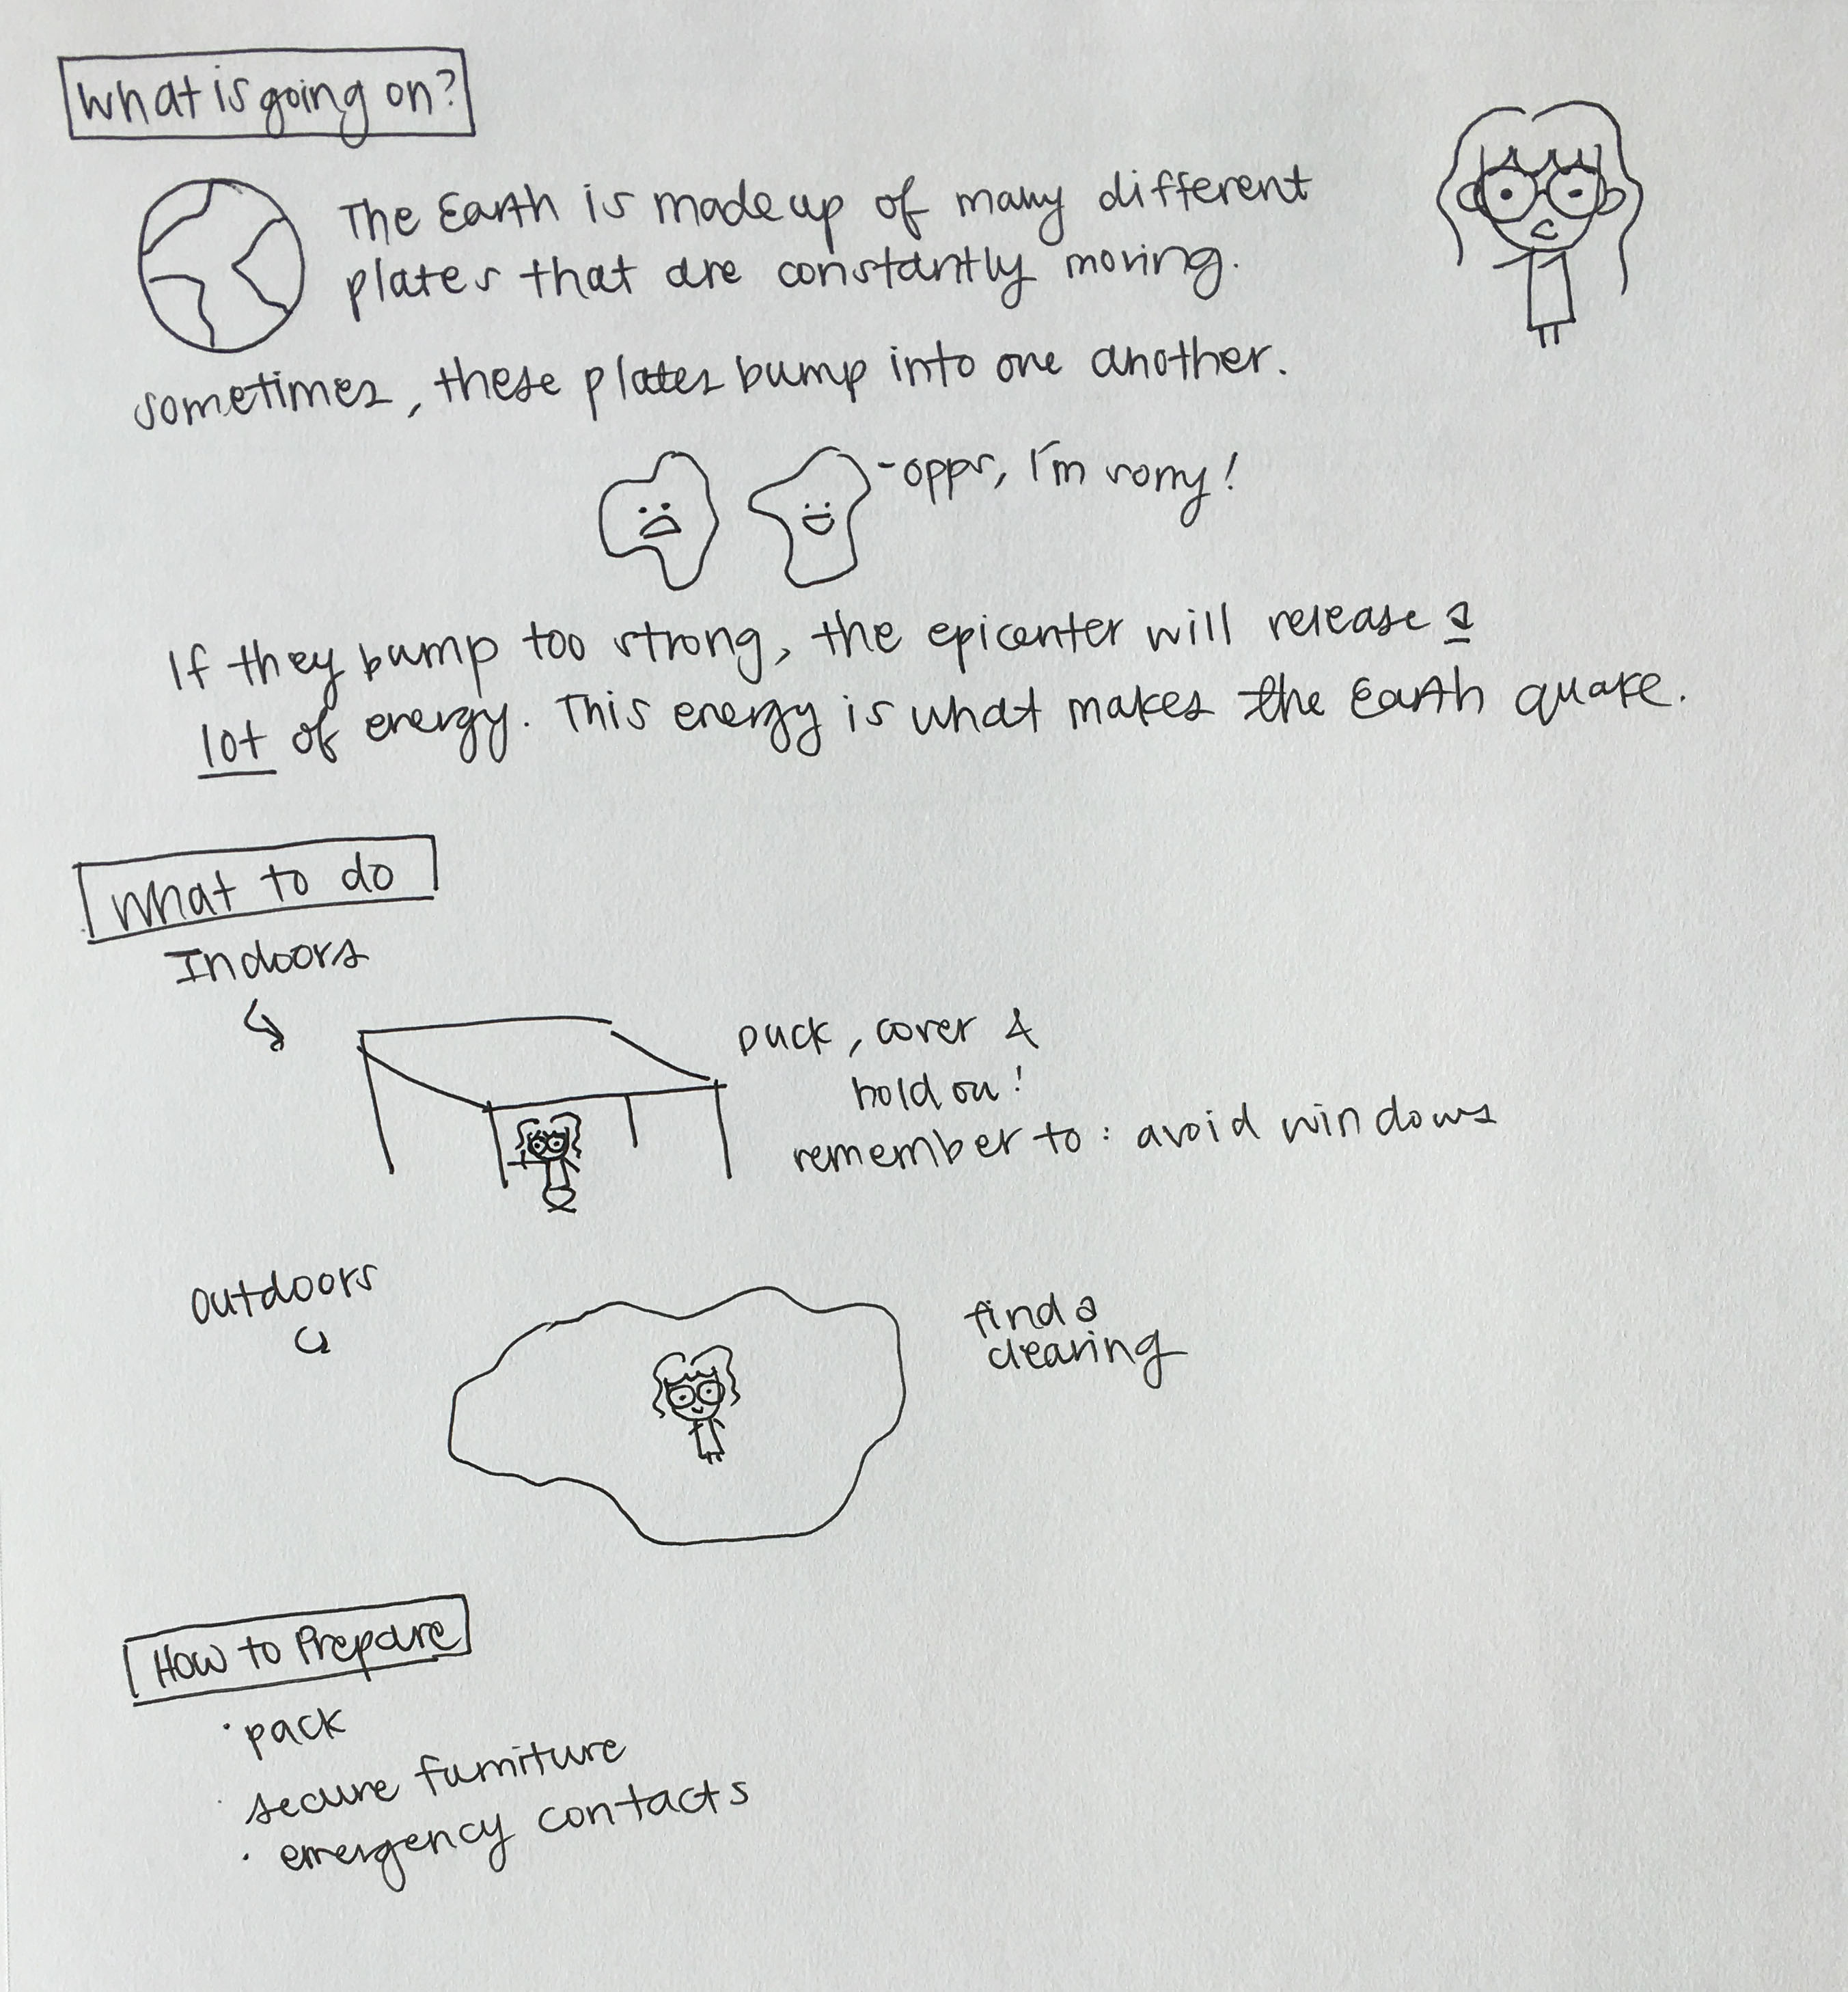 What is going on?
The Earth is made up of many different
plates that are constantly moving.
sometimes, these plates bump into one another.
-opps, I'm sorry!
If they bump too strong, the epicenter will release a
lot of energy. This energy is what makes the Earth quake.
What to do
Indoors
Duck, cover &
hold on!
remember to: avoid windows
outdoors
find a
clearing
How to Prepare
· pack
· secure furniture
· emergency contacts